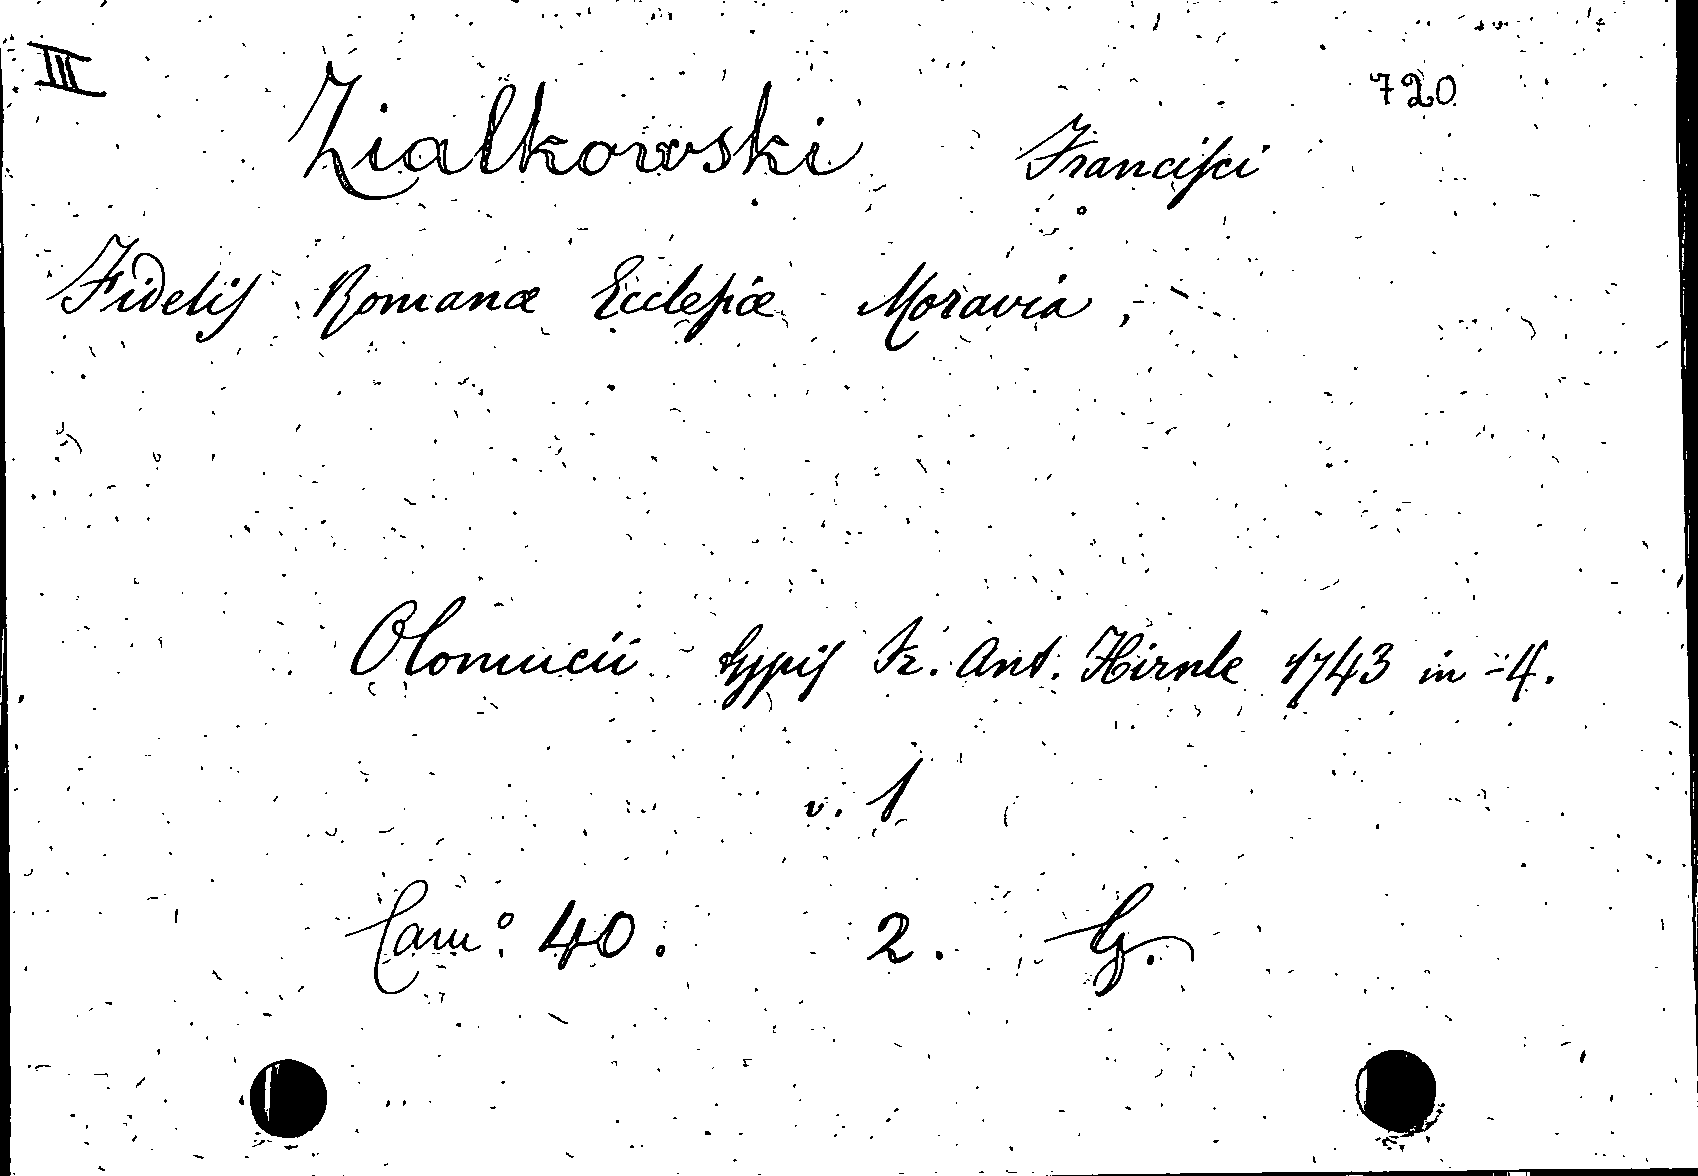 III
720
Zialkowski Francisci
Fidelis Romanæ Ecclesiæ Moravia,
Olomucii typis Fr. Ant. Hirnle 1743 in -4.
v. 1
Cam: 40. 2. G.